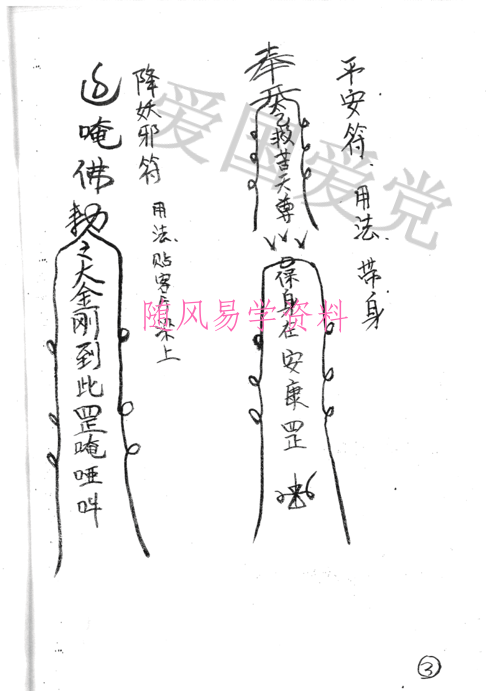 平安符 用法 带身
奉
太乙救苦天尊
保身在安康罡
降妖邪符 用法 贴客厅梁上
唵佛勅
之大金刚到此罡唵哑吽
爱国爱党
随风易学资料
3